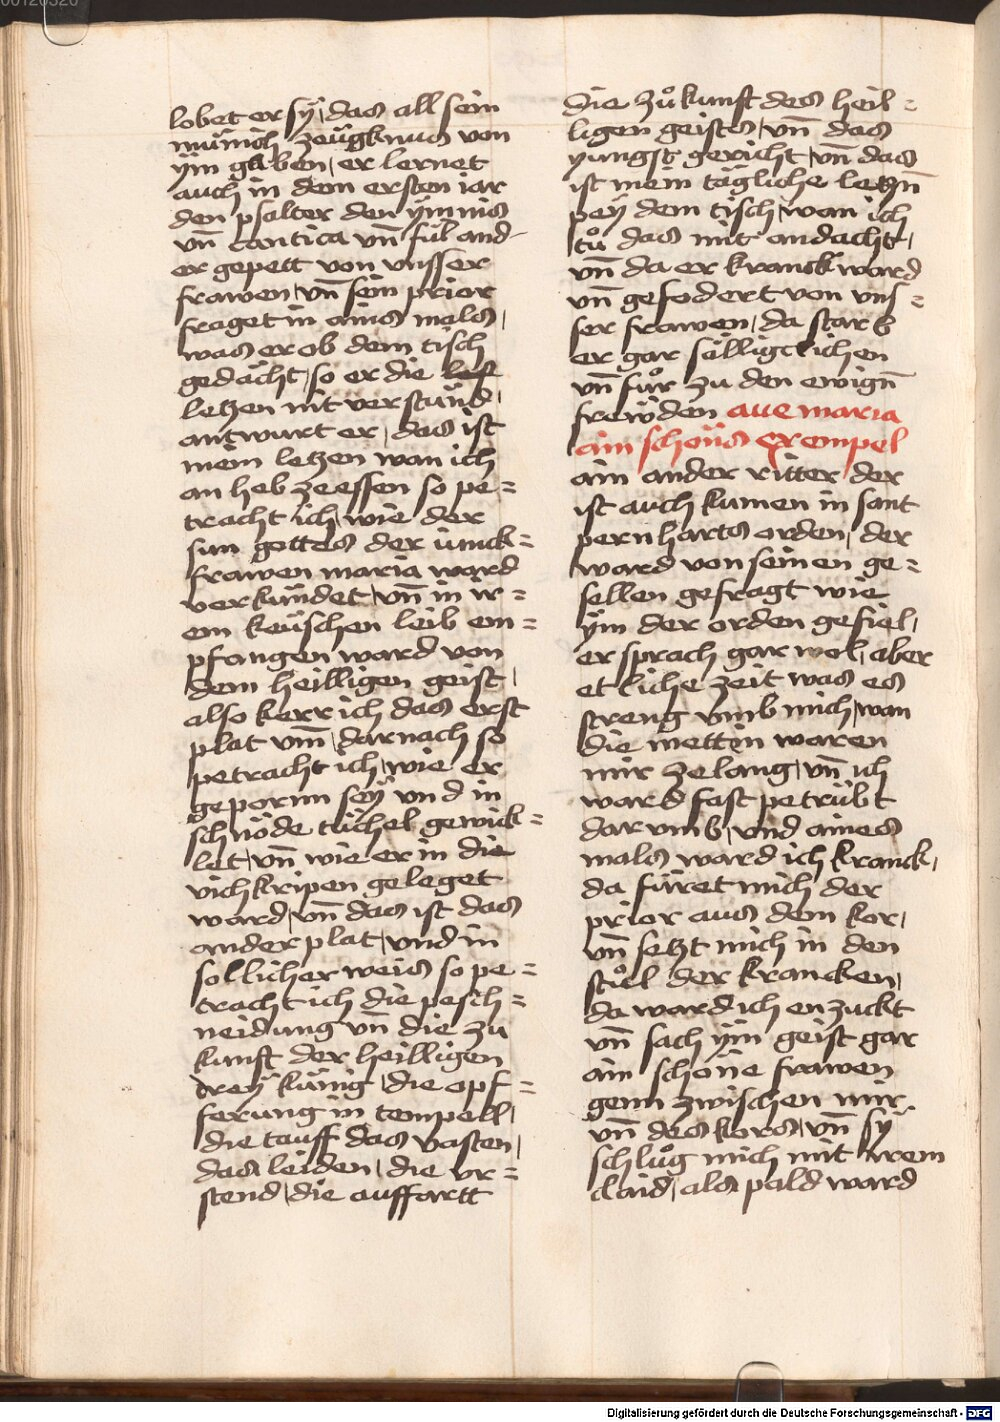 lobet er sÿ, das all sein
münich zeügknus von
ÿm gaben, er lernet
auch in dem ersten iar
den psalter den ÿmnis
vn̄ cantica vn̄ fül and-
er gepett von vnsser
frawen, vn̄ sein prior
fraget in ains mals,
was er ob dem tisch
gedächt, so er die lest
letzen nit verstünd,
antwurt er, das ist
mein letzen wan ich
an heb ze essen so pe=
tracht ich, wie der
sun gottes der iunck=
frawen maria ward
verkündet, vn̄ in ir=
em keüschen leib em=
pfangen ward von
dem heilligen geist,
also kerr ich das erst
plat vm̄, darnach so
petracht ich, wie er
gepornn seÿ vnd in
schnöde tüchel gewick=
let, vn̄ wie er in die
vichkripen geleget
ward, vn̄ das ist das
ander plat, vnd in
sollicher weis so pe=
tracht ich die pesch=
neidung vn̄ die zu
kunft der heilligen
dreÿ künig, die opf=
ferung in tempell,
die tauff das vasten,
das leiden, die vr=
stend, die auffartt
die zůkunft des heil=
ligen geistes, vn̄ das
yungst gericht, vn̄ das
ist mein tägliche letzn̄
peÿ dem tisch, wan ich
tů das mit andacht,
vn̄ da er kranck ward
vn̄ gefodert von vns=
ser frawen, da starb
er gar sälligclichen
vn̄ fůr zu den ewign̄
frewden aue maria
ain schöns exempel
ain ander ritter der
ist auch kumen in sant
pernharts orden, der
ward von seinen ge=
sellen gefragt wie
ÿm der orden gefiel,
er sprach gar wol, aber
etliche zeit was es
streng vmb mich, wan
die mettin waren
mir ze lang, vn̄ ich
ward fast petrübt
dar vmb, vnd aines
mals ward ich kranck,
da füret mich der
prior aus dem kor,
vn̄ setzt mich in den
stůl der krancken,
da ward ich enzuckt
vn̄ sach ÿm geist gar
ain schöne frawen
genn zwischen mir
vn̄ des kors, vn̄ sÿ
schlůg mich mit irem
claid, als pald ward
Digitalisierung gefördert durch die Deutsche Forschungsgemeinschaft - DFG